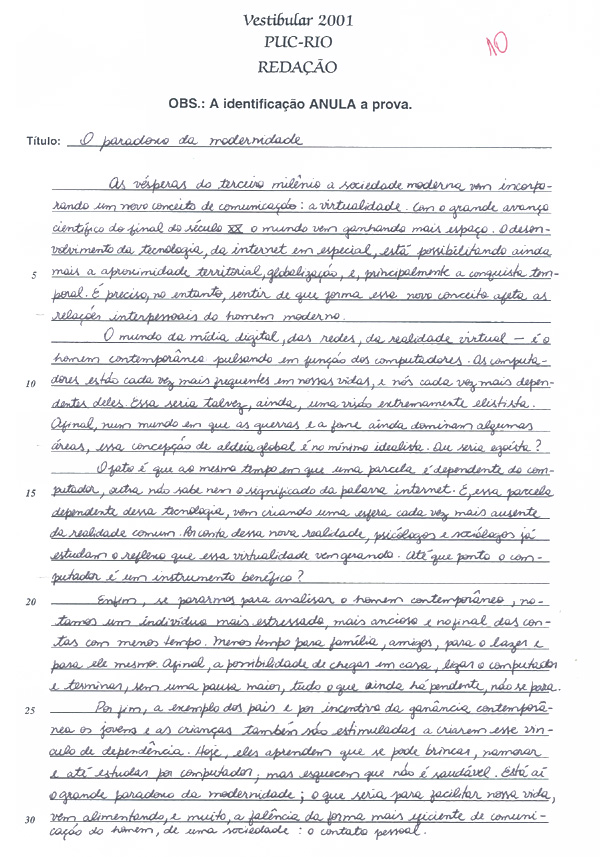 Vestibular 2001
PUC-RIO
REDAÇÃO
10
OBS.: A identificação ANULA a prova.
Título: O paradoxo da modernidade
As vésperas do terceiro milênio a sociedade moderna vem incorpo-
rando um novo conceito de comunicação: a virtualidade. Com o grande avanço
científico do final do século XX o mundo vem ganhando mais espaço. O desen-
volvimento da tecnologia, da internet em especial, está possibilitando ainda
5 mais a aproximidade territorial, globalização, e, principalmente a conquista tem-
poral. É preciso, no entanto, sentir de que forma esse novo conceito afeta as
relações interpessoais do homem moderno.
O mundo da mídia digital, das redes, da realidade virtual – é o
homem contemporâneo pulsando em função dos computadores. Os computa-
10 dores estão cada vez mais frequentes em nossas vidas, e nós cada vez mais depen-
dentes deles. Essa seria talvez, ainda, uma visão extremamente elistista.
Afinal, num mundo em que as guerras e a fome ainda dominam algumas
áreas, essa concepção de aldeia global é no mínimo idealista. Ou seria egoísta?
O fato é que ao mesmo tempo em que uma parcela é dependente do com-
15 putador, outra não sabe nem o significado da palavra internet. E, essa parcela
dependente dessa tecnologia, vem criando uma esfera cada vez mais ausente
da realidade comum. Por conta dessa nova realidade, psicólogos e sociólogos já
estudam o reflexo que essa virtualidade vem gerando. Até que ponto o com-
putador é um instrumento benéfico?
20 Enfim, se pararmos para analisar o homem contemporâneo, no-
tamos um indivíduo mais estressado, mais ancioso e no final das con-
tas com menos tempo. Menos tempo para família, amigos, para o lazer e
para ele mesmo. Afinal, a possibilidade de chegar em casa, ligar o computador
e terminar, sem uma pausa maior, tudo o que ainda há pendente, não se para.
25 Por fim, a exemplo dos pais e por incentivo da ganância contemporâ-
nea os jovens e as crianças também são estimuladas a criarem esse vín-
culo de dependência. Hoje, eles aprendem que se pode brincar, namorar
e até estudar por computador; mas esquecem que não é saudável. Está aí
o grande paradoxo da modernidade; o que seria para facilitar nossa vida,
30 vem alimentando, e muito, a falência da forma mais eficiente de comuni-
cação do homem, de uma sociedade: o contato pessoal.